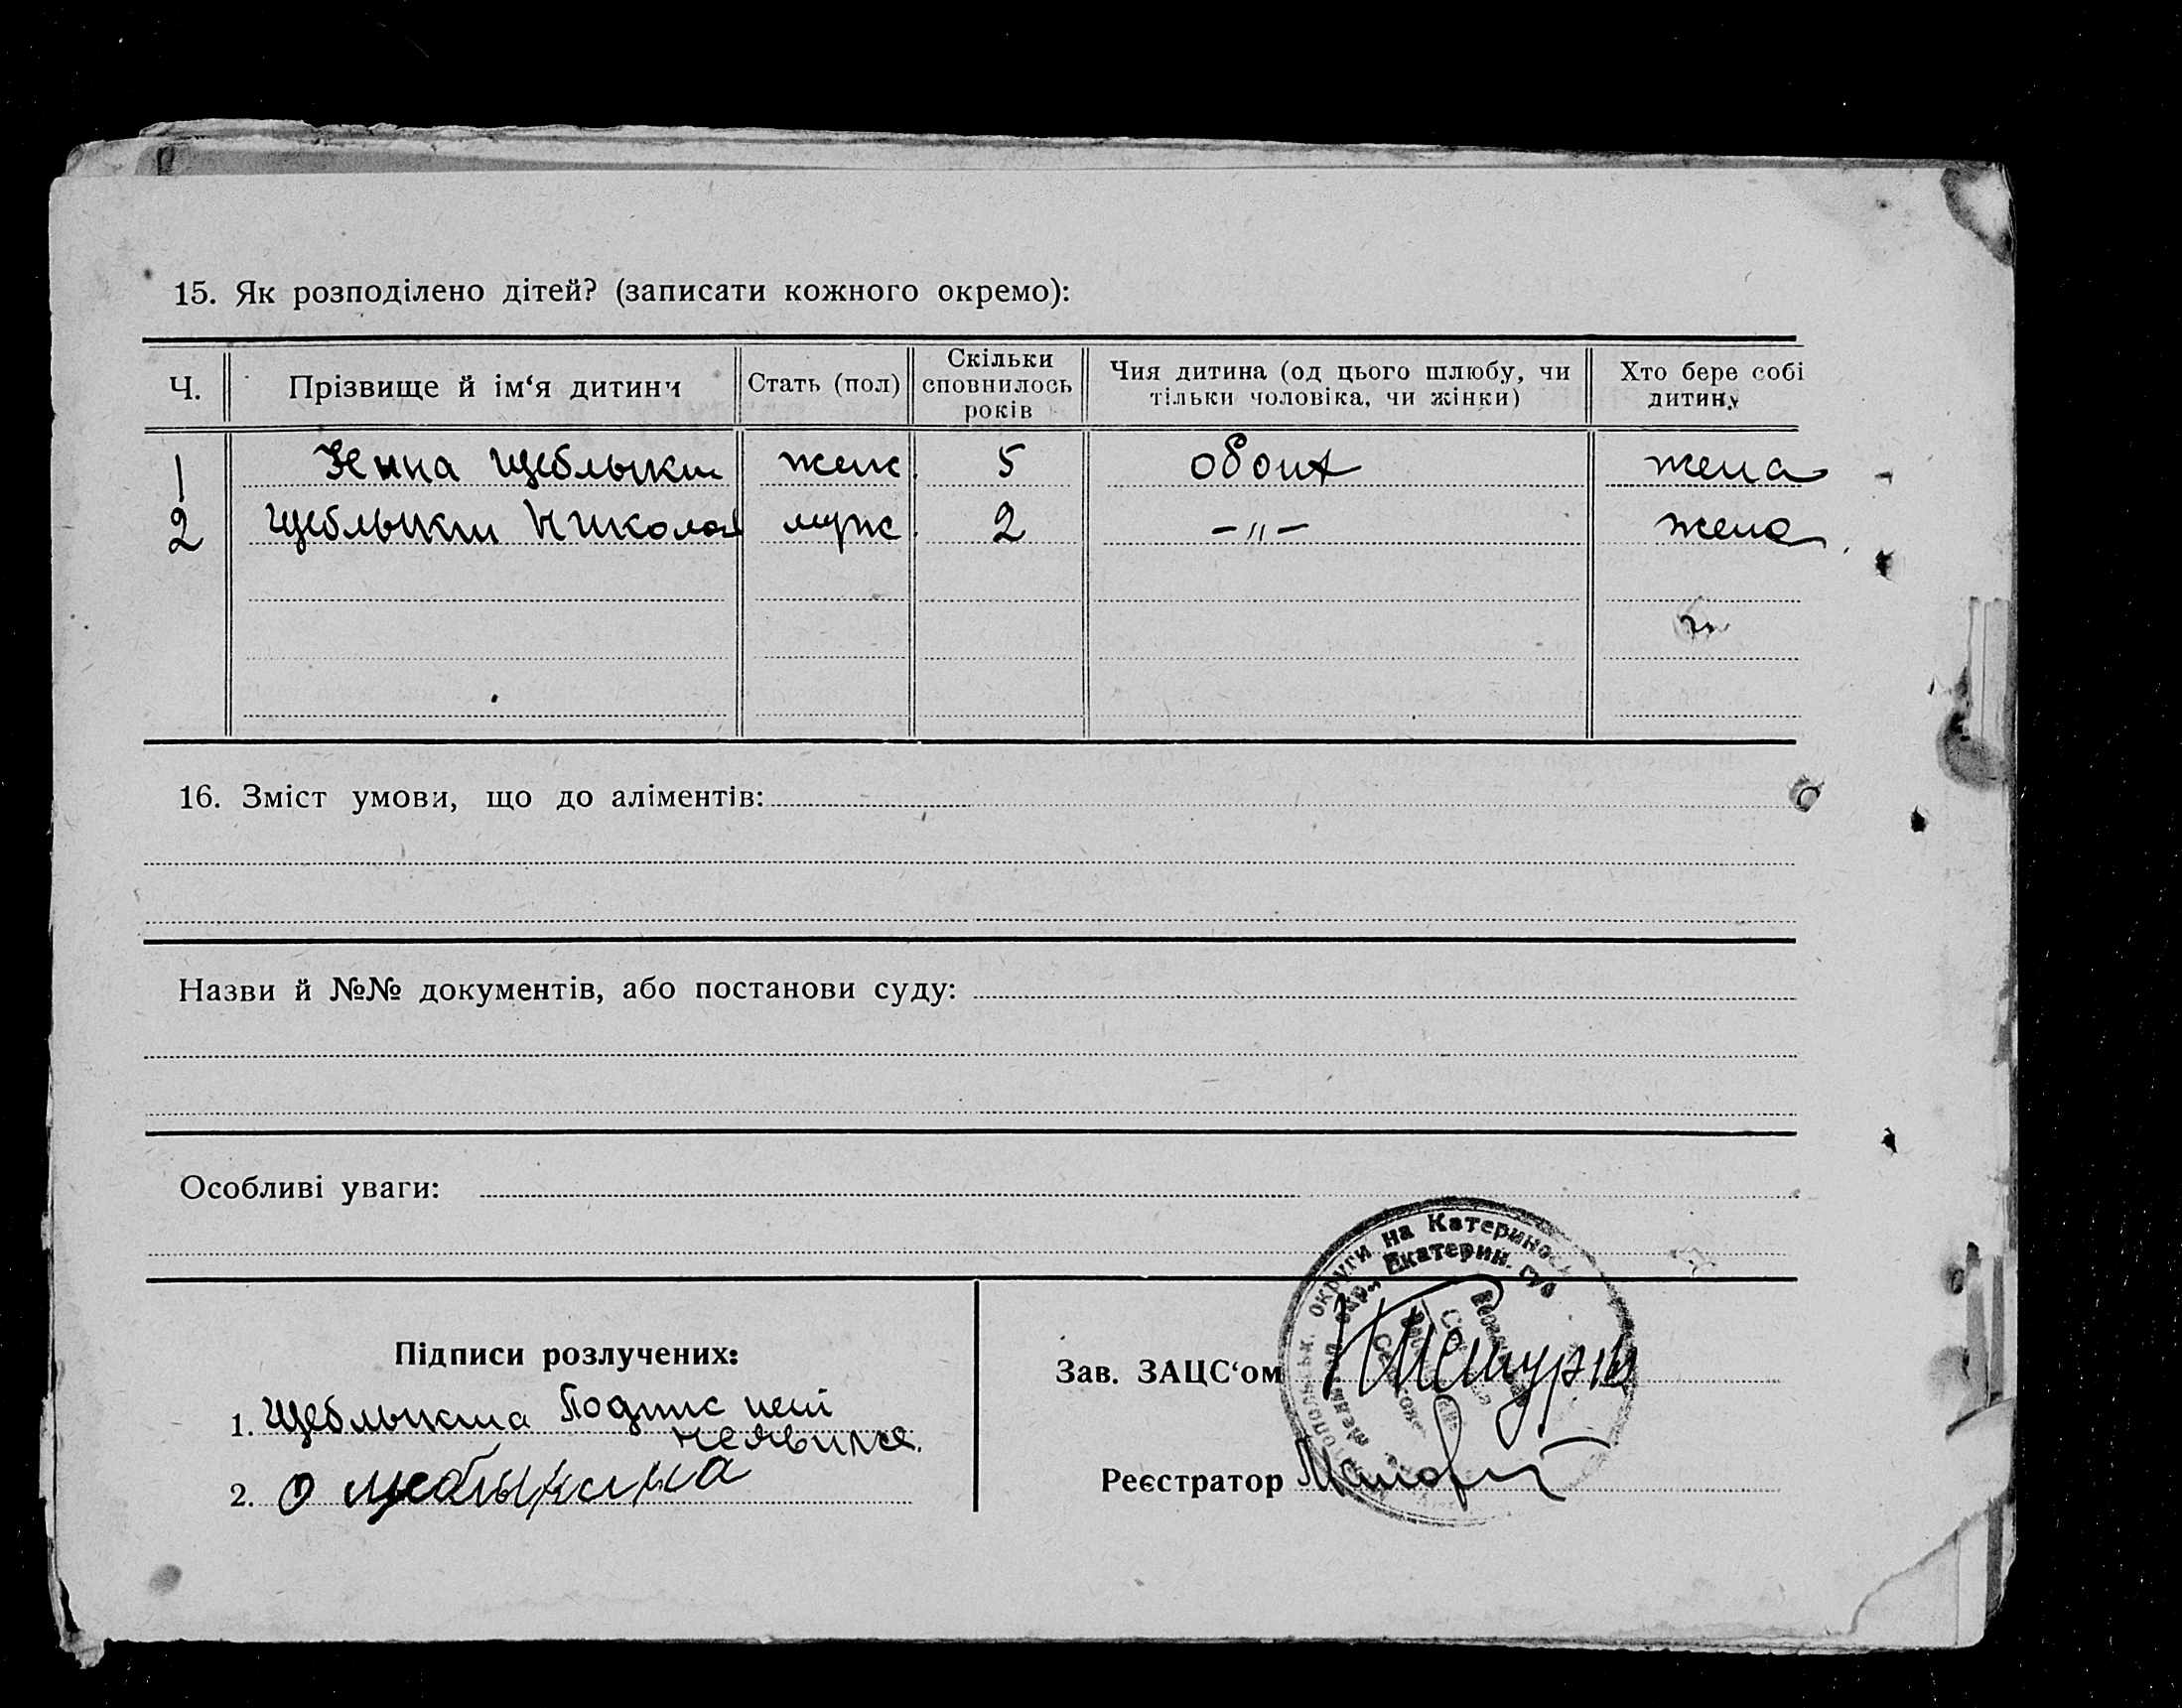 15. Як розподілено дітей? (записати кожного окремо):
Ч. Прізвище й ім‘я дитини Стать (пол) Скільки сповнилось років Чия дитина (од цього шлюбу, чи тільки чоловіка, чи жінки) Хто бере собі дитину
1 Щеблыкин женс. 5 обоих жена
2 Щеблыкин Николай мужс. 2 -〃- жена
16. Зміст умови, що до аліментів:
Назви й №№ документів, або постанови суду:
Особливі уваги:
округи на Катеринос
окр., Екатерин. губ
Підписи розлучених:
1. Щеблыкина Подпис неявился.
2. О Щеблыкина
Зав. ЗАЦС‘ом
Реєстратор